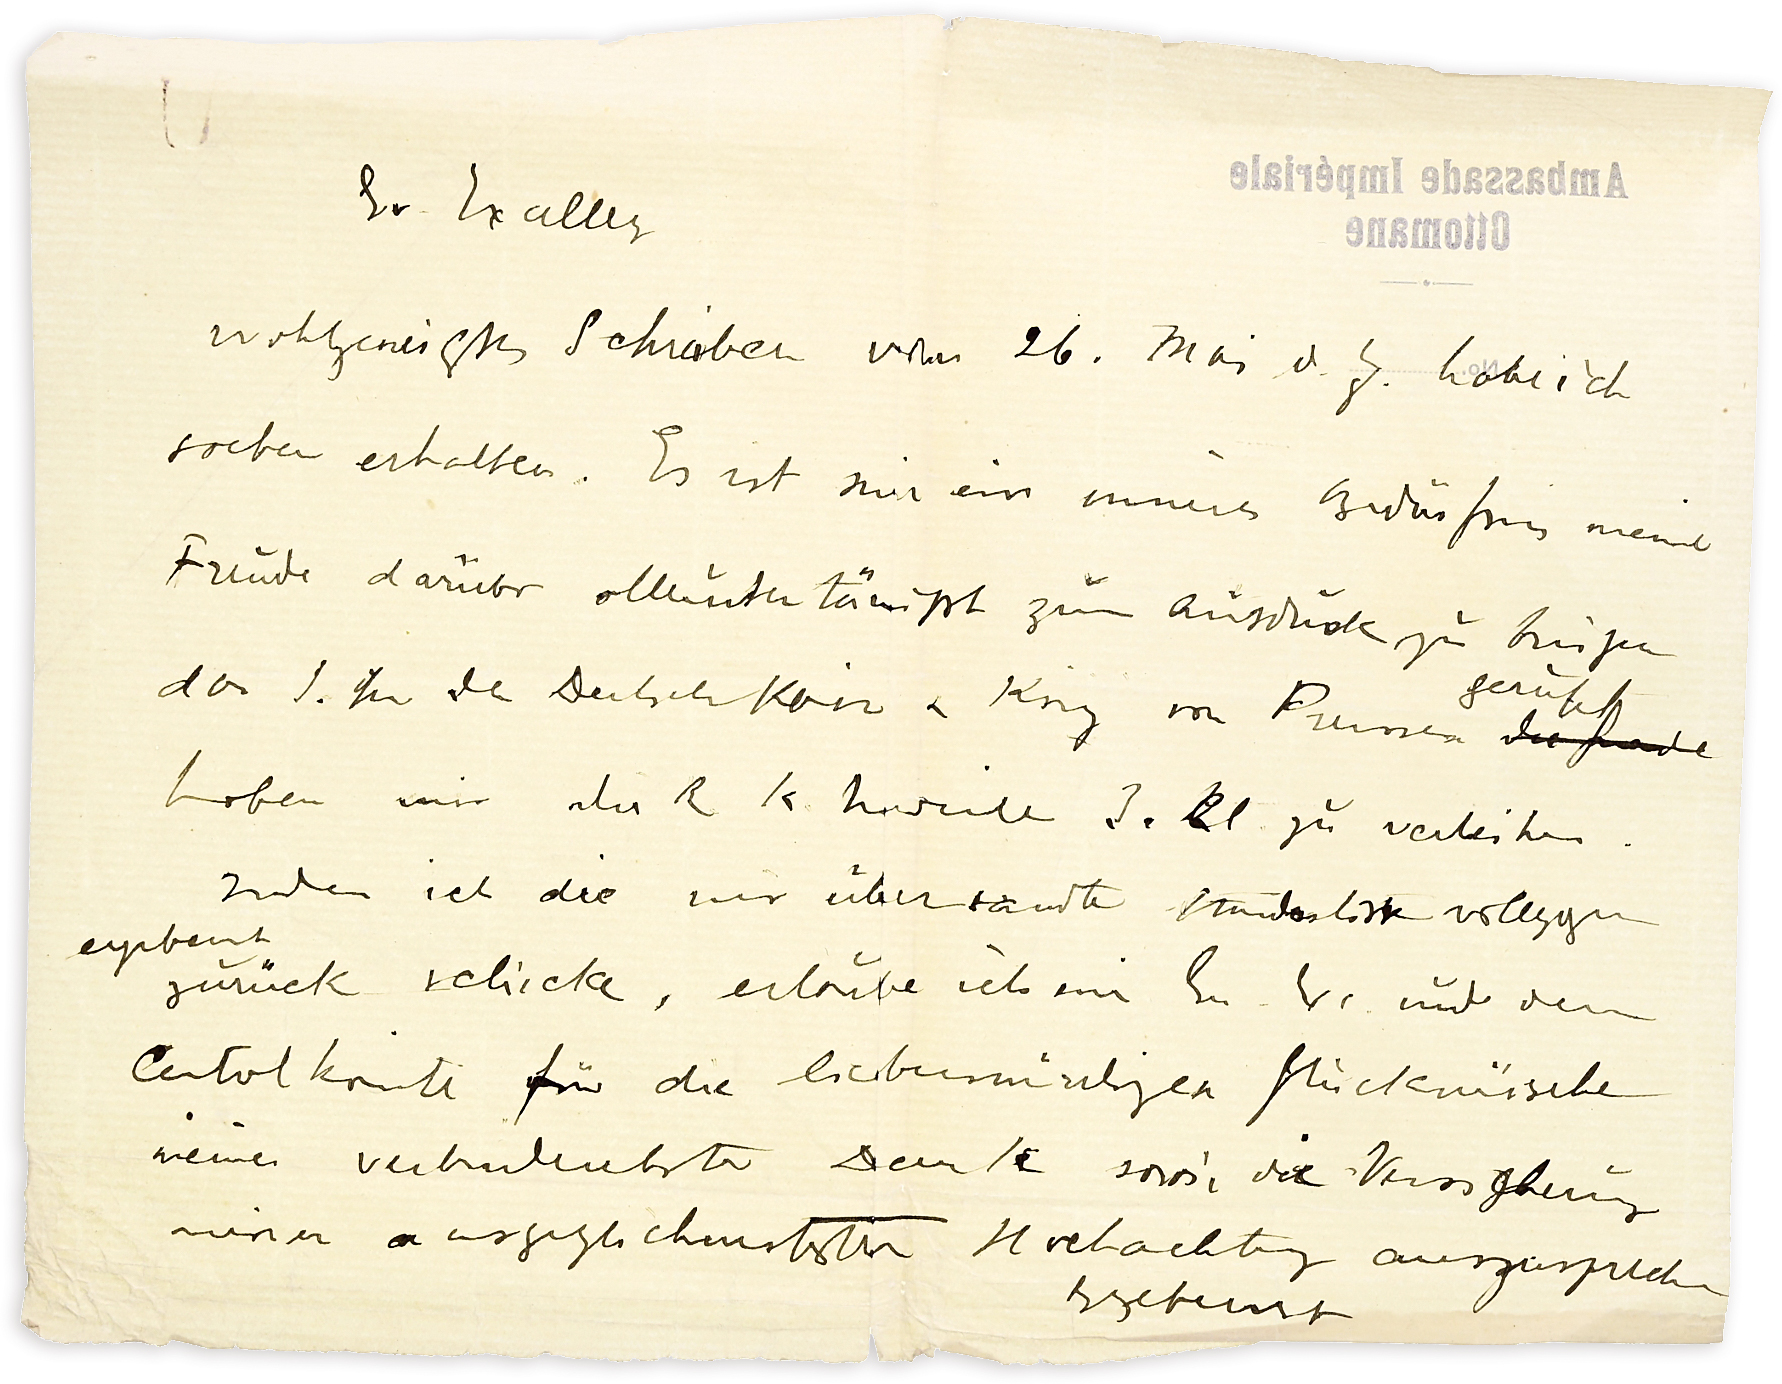 Ambassade Impériale
Ottomane
No.
Ew. Excellenz
wohlgeneigtes Schreiben vom 26. Mai d. J. habe ich
soeben erhalten. Es ist mir ein inneres Bedürfnis meine
Freude darüber alleruntertänigst zum Ausdruck zu bringen
das S. M. der Deutsche Kaiser u. König von Preussen geruht
haben mir die R K Medaille 3. Kl. zu verleihen.
Indem ich die mir übersandte vollzogen
ergebenst
zurück schicke, erlaube ich mir Ew. Ex. und dem
Centralkomite für die liebenswürdigen Glückwünsche
meinen verbindlichsten Dank sowie die Versicherung
meiner ausgezeichnetsten Hochachtung auszusprechen
Ergebenst